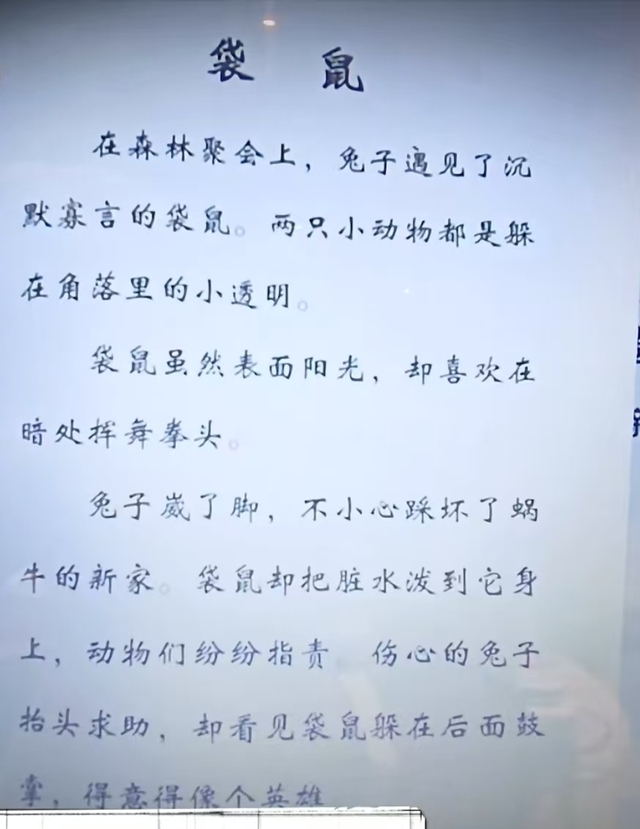 袋 鼠
在森林聚会上，兔子遇见了沉
默寡言的袋鼠。两只小动物都是躲
在角落里的小透明。
袋鼠虽然表面阳光，却喜欢在
暗处挥舞拳头。
兔子崴了脚，不小心踩坏了蜗
牛的新家。袋鼠却把脏水泼到它身
上，动物们纷纷指责 伤心的兔子
抬头求助，却看见袋鼠躲在后面鼓
掌，得意得像个英雄